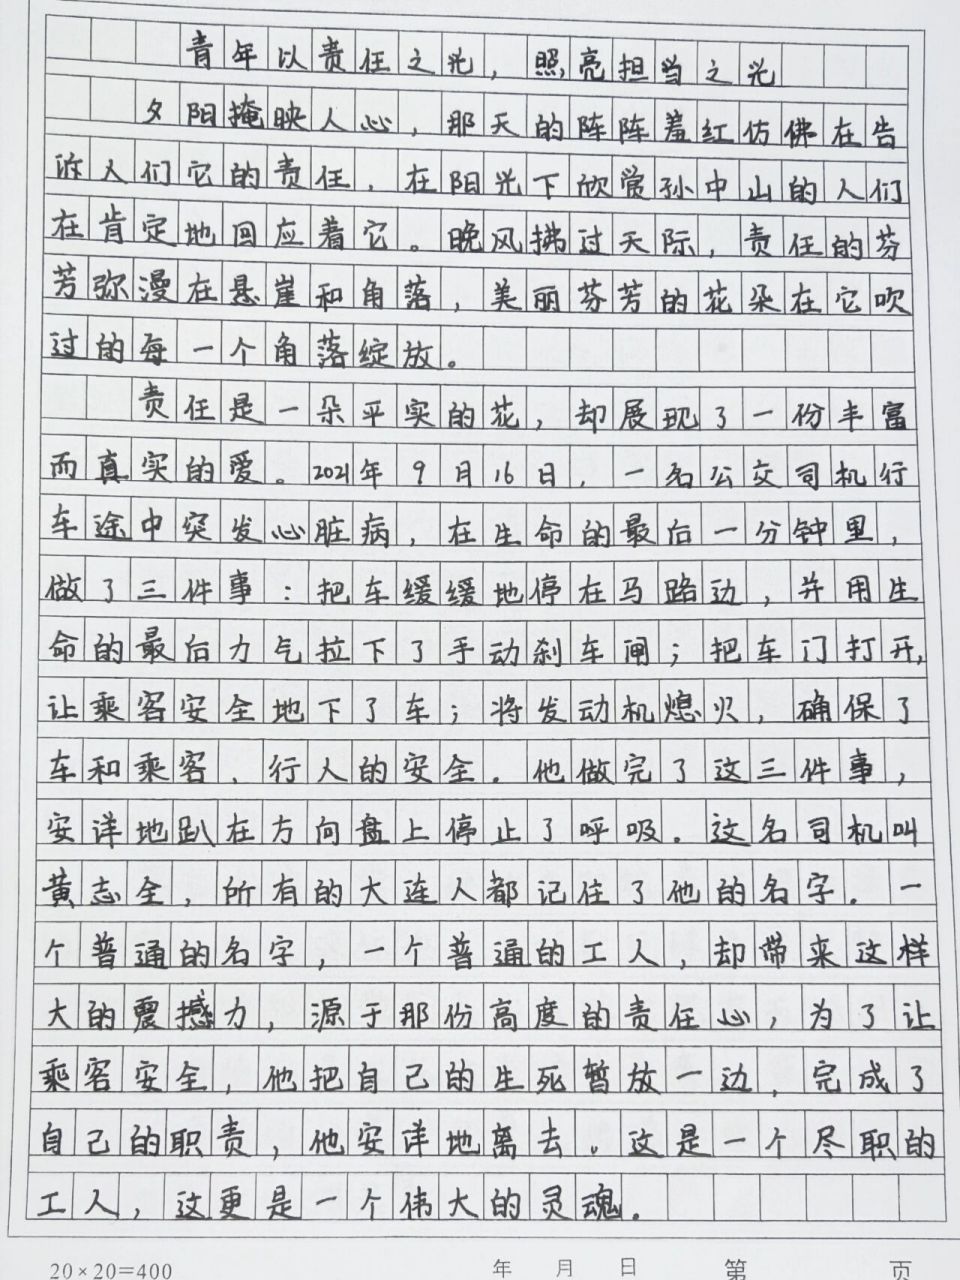 青年以责任之光，照亮担当之光
夕阳掩映人心，那天的阵阵羞红仿佛在告
诉人们它的责任，在阳光下欣赏孙中山的人们
在肯定地回应着它。晚风拂过天际，责任的芬
芳弥漫在悬崖和角落，美丽芬芳的花朵在它吹
过的每一个角落绽放。
责任是一朵平实的花，却展现了一份丰富
而真实的爱。2021年9月16日，一名公交司机行
车途中突发心脏病，在生命的最后一分钟里，
做了三件事：把车缓缓地停在马路边，并用生
命的最后力气拉下了手动刹车闸；把车门打开，
让乘客安全地下了车；将发动机熄火，确保了
车和乘客、行人的安全。他做完了这三件事，
安详地趴在方向盘上停止了呼吸。这名司机叫
黄志全，所有的大连人都记住了他的名字。一
个普通的名字，一个普通的工人，却带来这样
大的震撼力，源于那份高度的责任心，为了让
乘客安全，他把自己的生死暂放一边，完成了
自己的职责，他安详地离去。这是一个尽职的
工人，这更是一个伟大的灵魂。
20×20=400 年 月 日 第 页